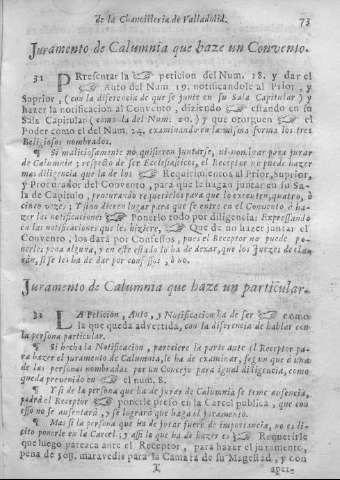 de la Chancilleria de Valladolid. 73
Juramento de Calumnia que haze un Convento.
31 PResentar la peticion del Num. 18. y dar el
Auto del Num. 19. notificandole al Prior, y
Suprior, (con la diferencia de que se junte en su Sala Capitular) y
hazer la notificacion al Convento, diziendo estando en su
Sala Capitular (como la del Num. 20.) y que otorguen el
Poder como el del Num. 24, examinando en la misma forma los tres
Religiosos nombrados.
¶ Si maliciosamente no quisieren juntarse, ni lugar para jurar
de Calumnia; respecto de ser Eclesiasticos, el Receptor no puede hazer
mas diligencia que la de los Requirimientos al Prior, Suprior,
y Procurador del Convento, para que le hagan juntar en su Sa-
la de Capitulo, procurando repetirlos para que lo executen, quatro, ò
cinco vezes; Y si no dieren lugar para que se entre en el Convento, à ha-
zer las notificaciones Ponerlo todo por diligencia: Expressando
en las notificaciones que les hiziere, Que de no hazer juntar el
Convento, los darà por Confessos, pues el Receptor no puede po-
nerles pena alguna, y en este estado lo ha de dexar, que los Juezes decla-
ran, si se les ha de dar por confessos, ò no.
Juramento de Calumnia que haze un particular.
32 LA Peticion, Auto, y Notificacion ha de ser como
la que queda advertida, con la diferencia de hablar con
la persona particular.
¶ Si hecha la Notificacion, pareciere la parte ante el Receptor pa-
ra hazer el juramento de Calumnia, se ha de examinar, segun que à una
de las personas nombradas por un Concejo para igual diligencia, como
queda prevenido en el num. 8.
¶ Y si de la persona que ha de jurar de Calumnia se teme ausencia,
podrà el Receptor ponerle preso en la Carcel publica, que con
esso no se ausentarà, y se lograrà que haga el juramento.
¶ Mas si la persona que ha de jurar fuere de importancia, no es li-
cito ponerle en la Carcel; y assi lo que ha de hazer es Requerirle
que luego parezca ante el Receptor, para hazer el juramento,
pena de 50y. maravedis para la Camara de su Magestad, y con
T aper-